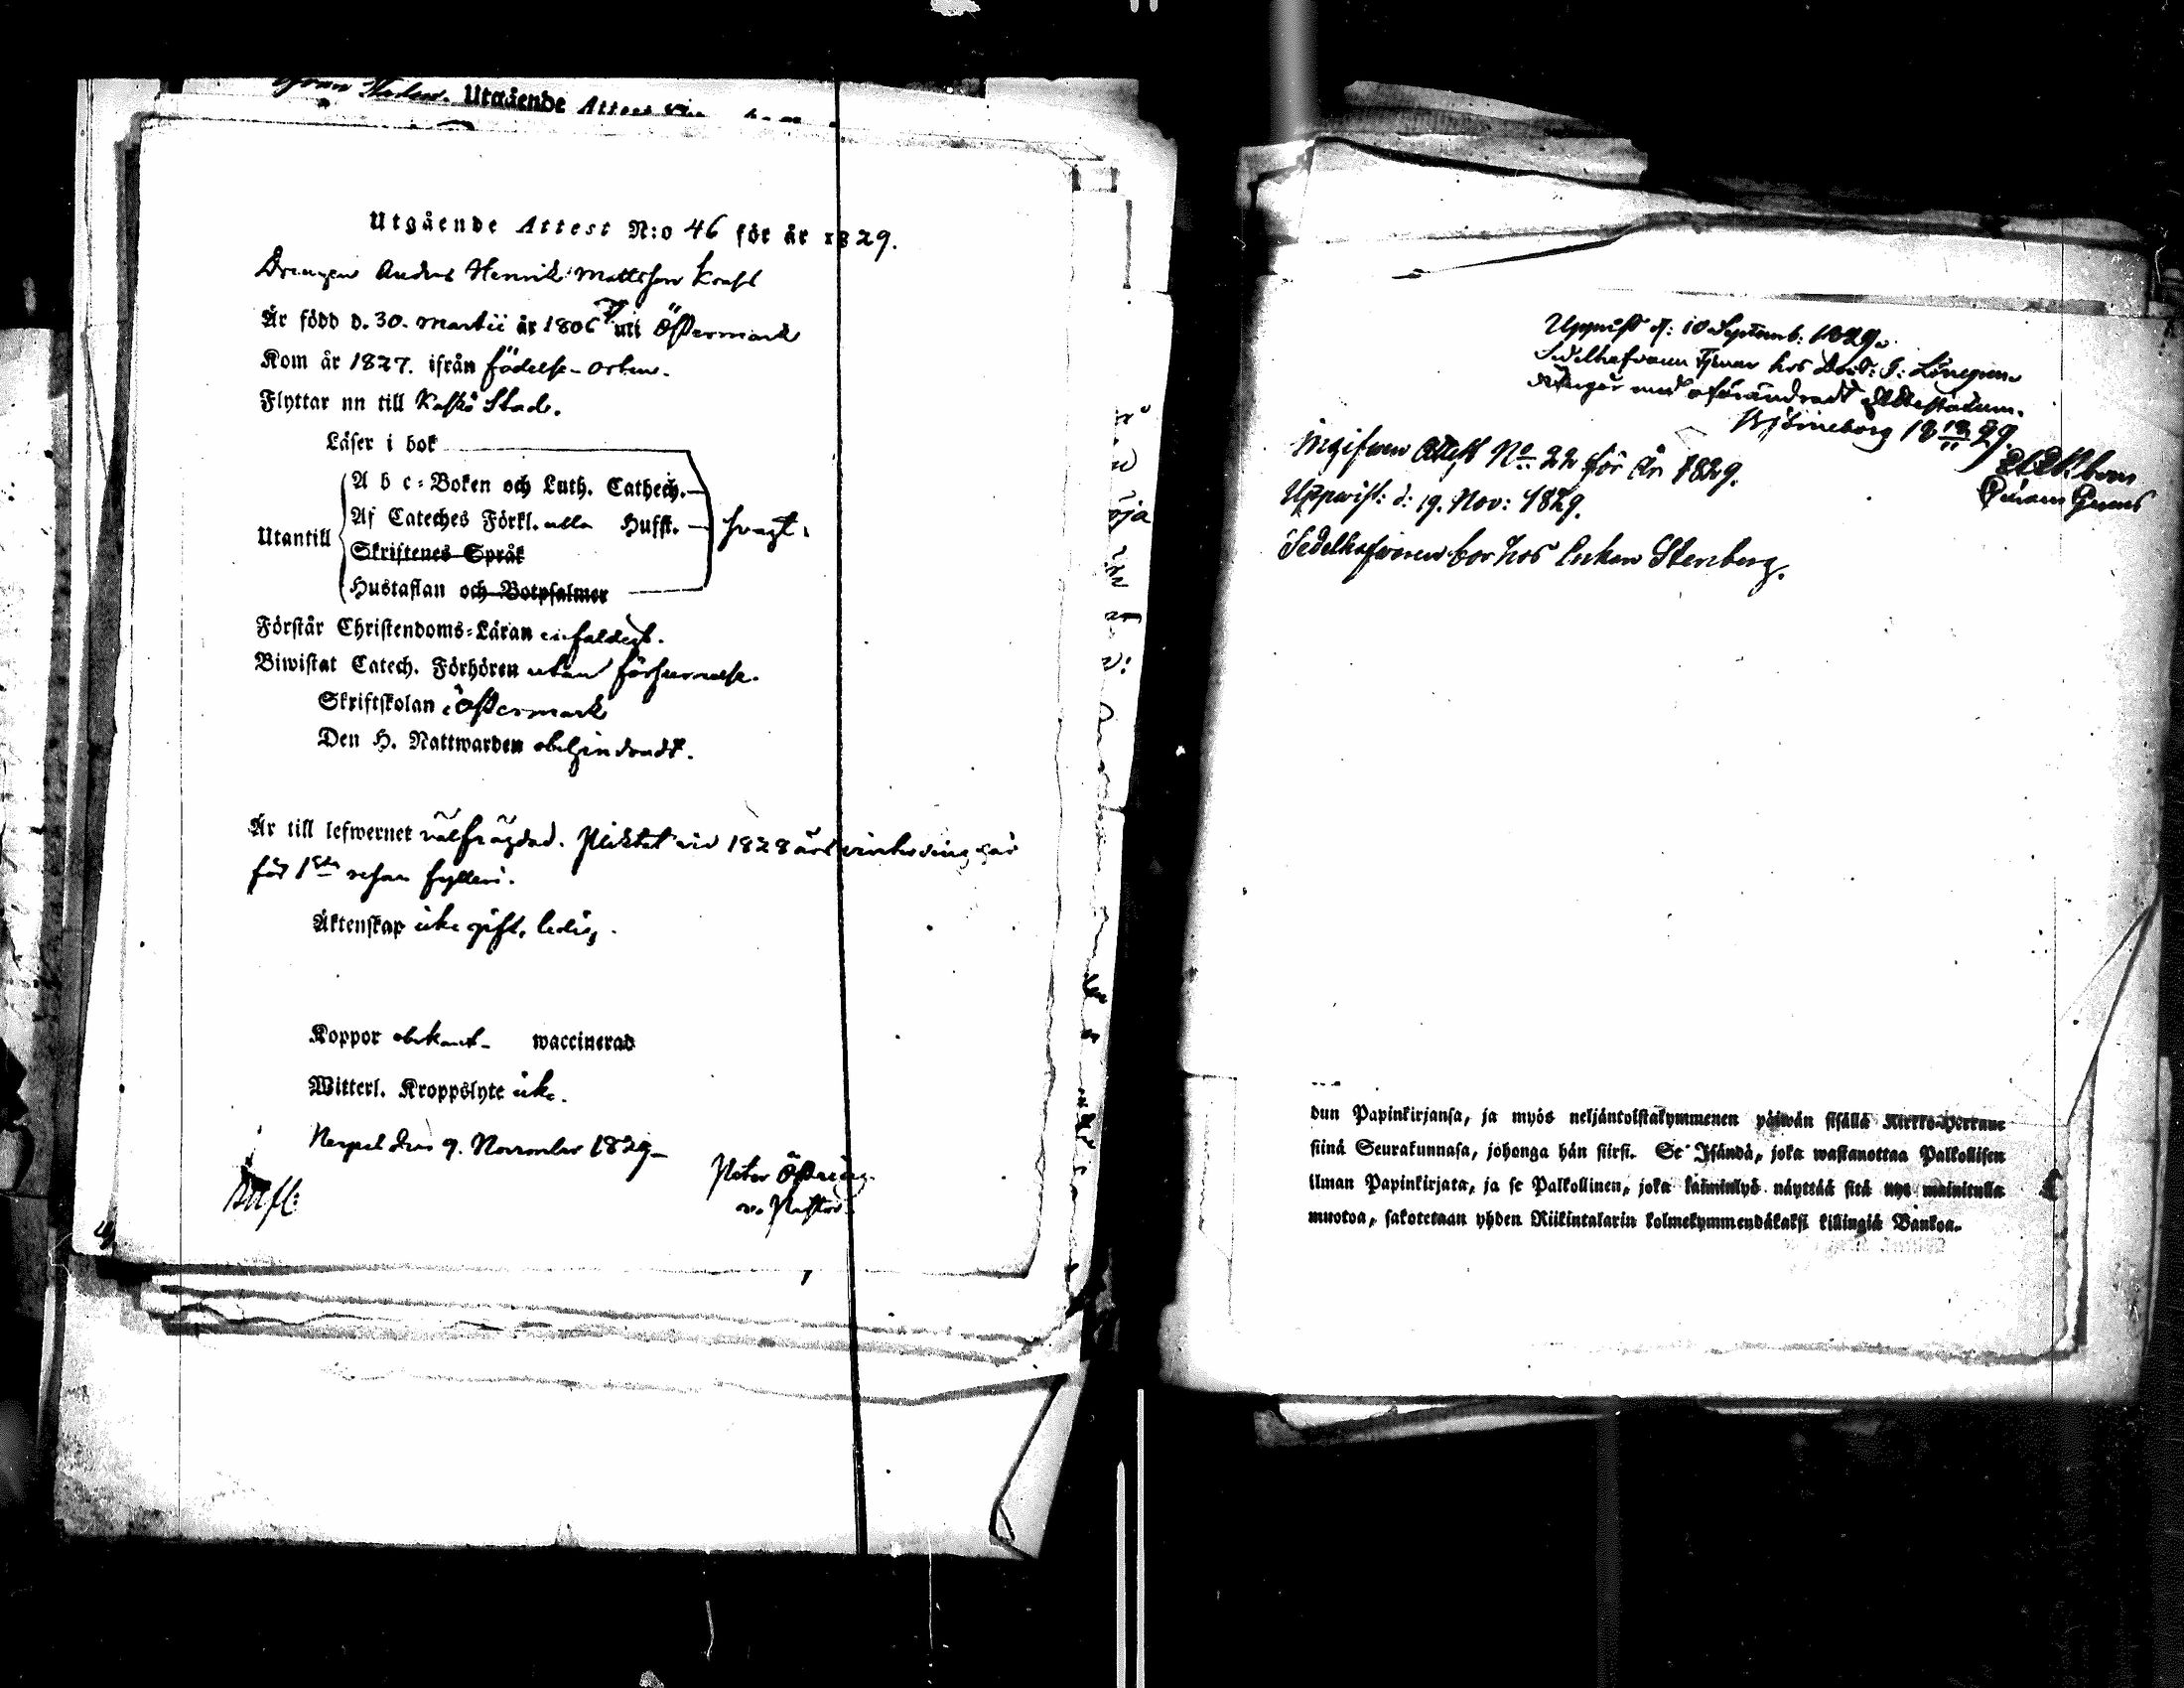 Utgående Attest
Utgående Attest N:o 46 för år 1829.
Drengen Anders Henrik Mattsson
Är född d. 30. Martii år 1806 uti Östermark
Kom år 1827. ifrån födelse-orten.
Flyttar nu till Kaskö Stad.
Läser i bok
A b c-Boken och Luth. Cathech.
Utantill Af Cateches Förkl. alla Hufst. svagt.
Skriftenes Språk
Hustaflan och Botpsalmer
Förstår Christendoms-Läran enfaldigt.
Biwistat Catech. Förhören utan försummelse.
Skriftskolan i Östermark
Den H. Nattwarden obehindradt.
Är till lefwernet välfrägdad. Pliktat vid 1828 års vinterting här
för 1sta resan fylleri.
Äktenskap icke gift, ledig.
Koppor obekant waccinerad
Witterl. Kroppslyte icke.
Nerpes den 9. November 1829
Peter
v. Pastor.
Uppvist d: 10 Septemb: 1829.
Sedelhafvaren tjenar hos
med oförändradt
Björneborg 18 29.
Ingifven Attest No 22 för År 1829.
Uppvist: d: 19. Nov: 1829.
Sedelhafvaren bor hos Enkan Stenberg.
dun Papinkirjansa, ja myös neljäntoistakymmenen päiwän sisällä Kirkko-Herrane
siinä Seurakunnasa, johonga hän siirsi. Se Isändä, joka wastanottaa Palkollisen
ilman Papinkirjata, ja se Palkollinen, joka laiminlyö näyttää sitä nyt mainitulla
muotoa, sakotetaan yhden Riikintalarin kolmekymmendäkaksi killingiä Bankoa.